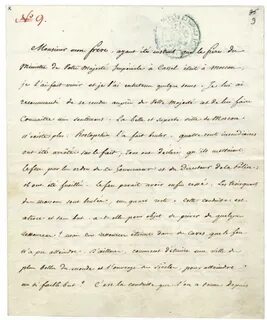 N° 9.
3
Monsieur mon frère, ayant été instruit que le frère du
Ministre de Votre Majesté Impériale à Cassel était à Moscou
je l'ai fait venir et je l'ai entretenu quelque tems. Je lui ai
recommandé de se rendre auprès de Votre Majesté et de lui faire
connaître mes sentimens. La belle et superbe ville de Moscou
n'existe plus. Rostopchin l'a fait bruler. quatre cents incendiaires
ont été arrêtés sur le fait; tous ont déclaré qu'ils mettaient
le feu par les ordres de ce Gouverneur et du Directeur de la Police:
ils ont été fusillés. Le feu paraît avoir enfin cessé. Les trois quarts
des maisons sont brulées, un quart reste. Cette conduite est
atroce et sans but. a-t-elle pour objet de priver de quelques
ressources? mais ces ressources étaient dans des caves que le feu
n'a pu atteindre. D'ailleurs, comment détruire une ville des
plus belles du monde et l'ouvrage des siècles pour atteindre
un si faible but? C'est la conduite que l'on a tenue depuis